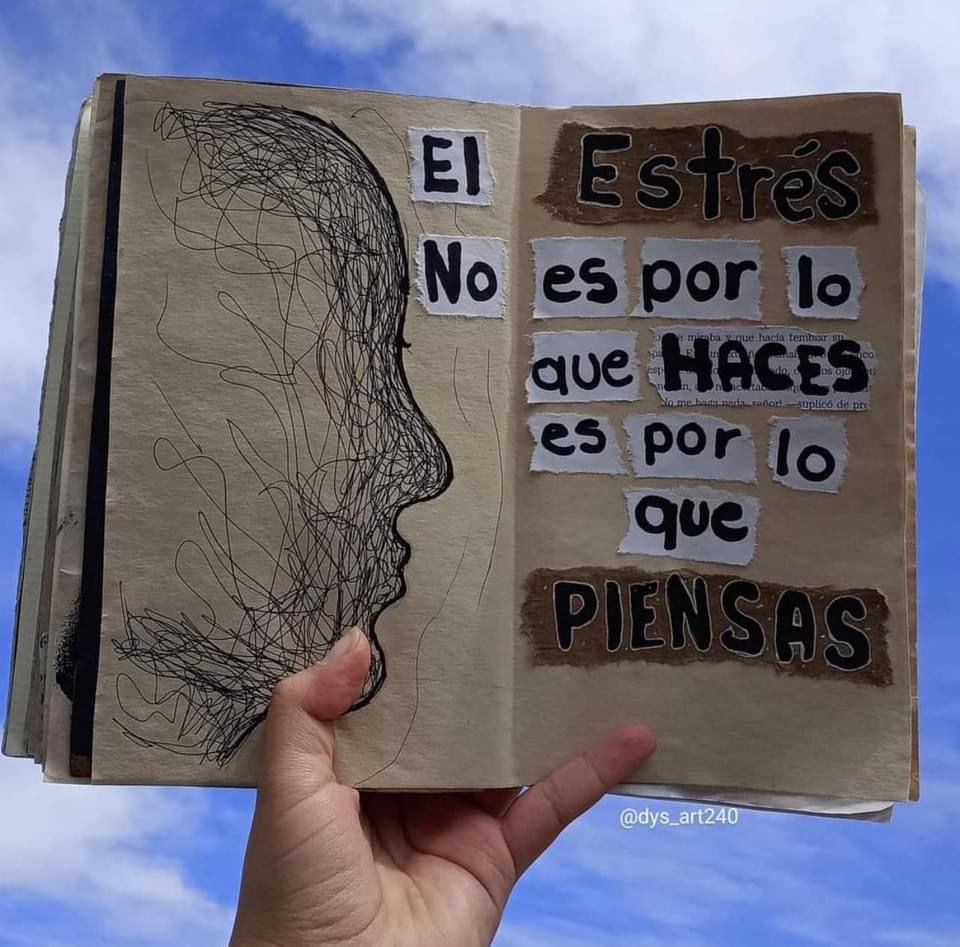 El Estrés
No es por lo
miraba y que hacía temblar
que HACES
me haga nada, señor! —suplicó de
es por lo
que
PIENSAS
@dys_art240